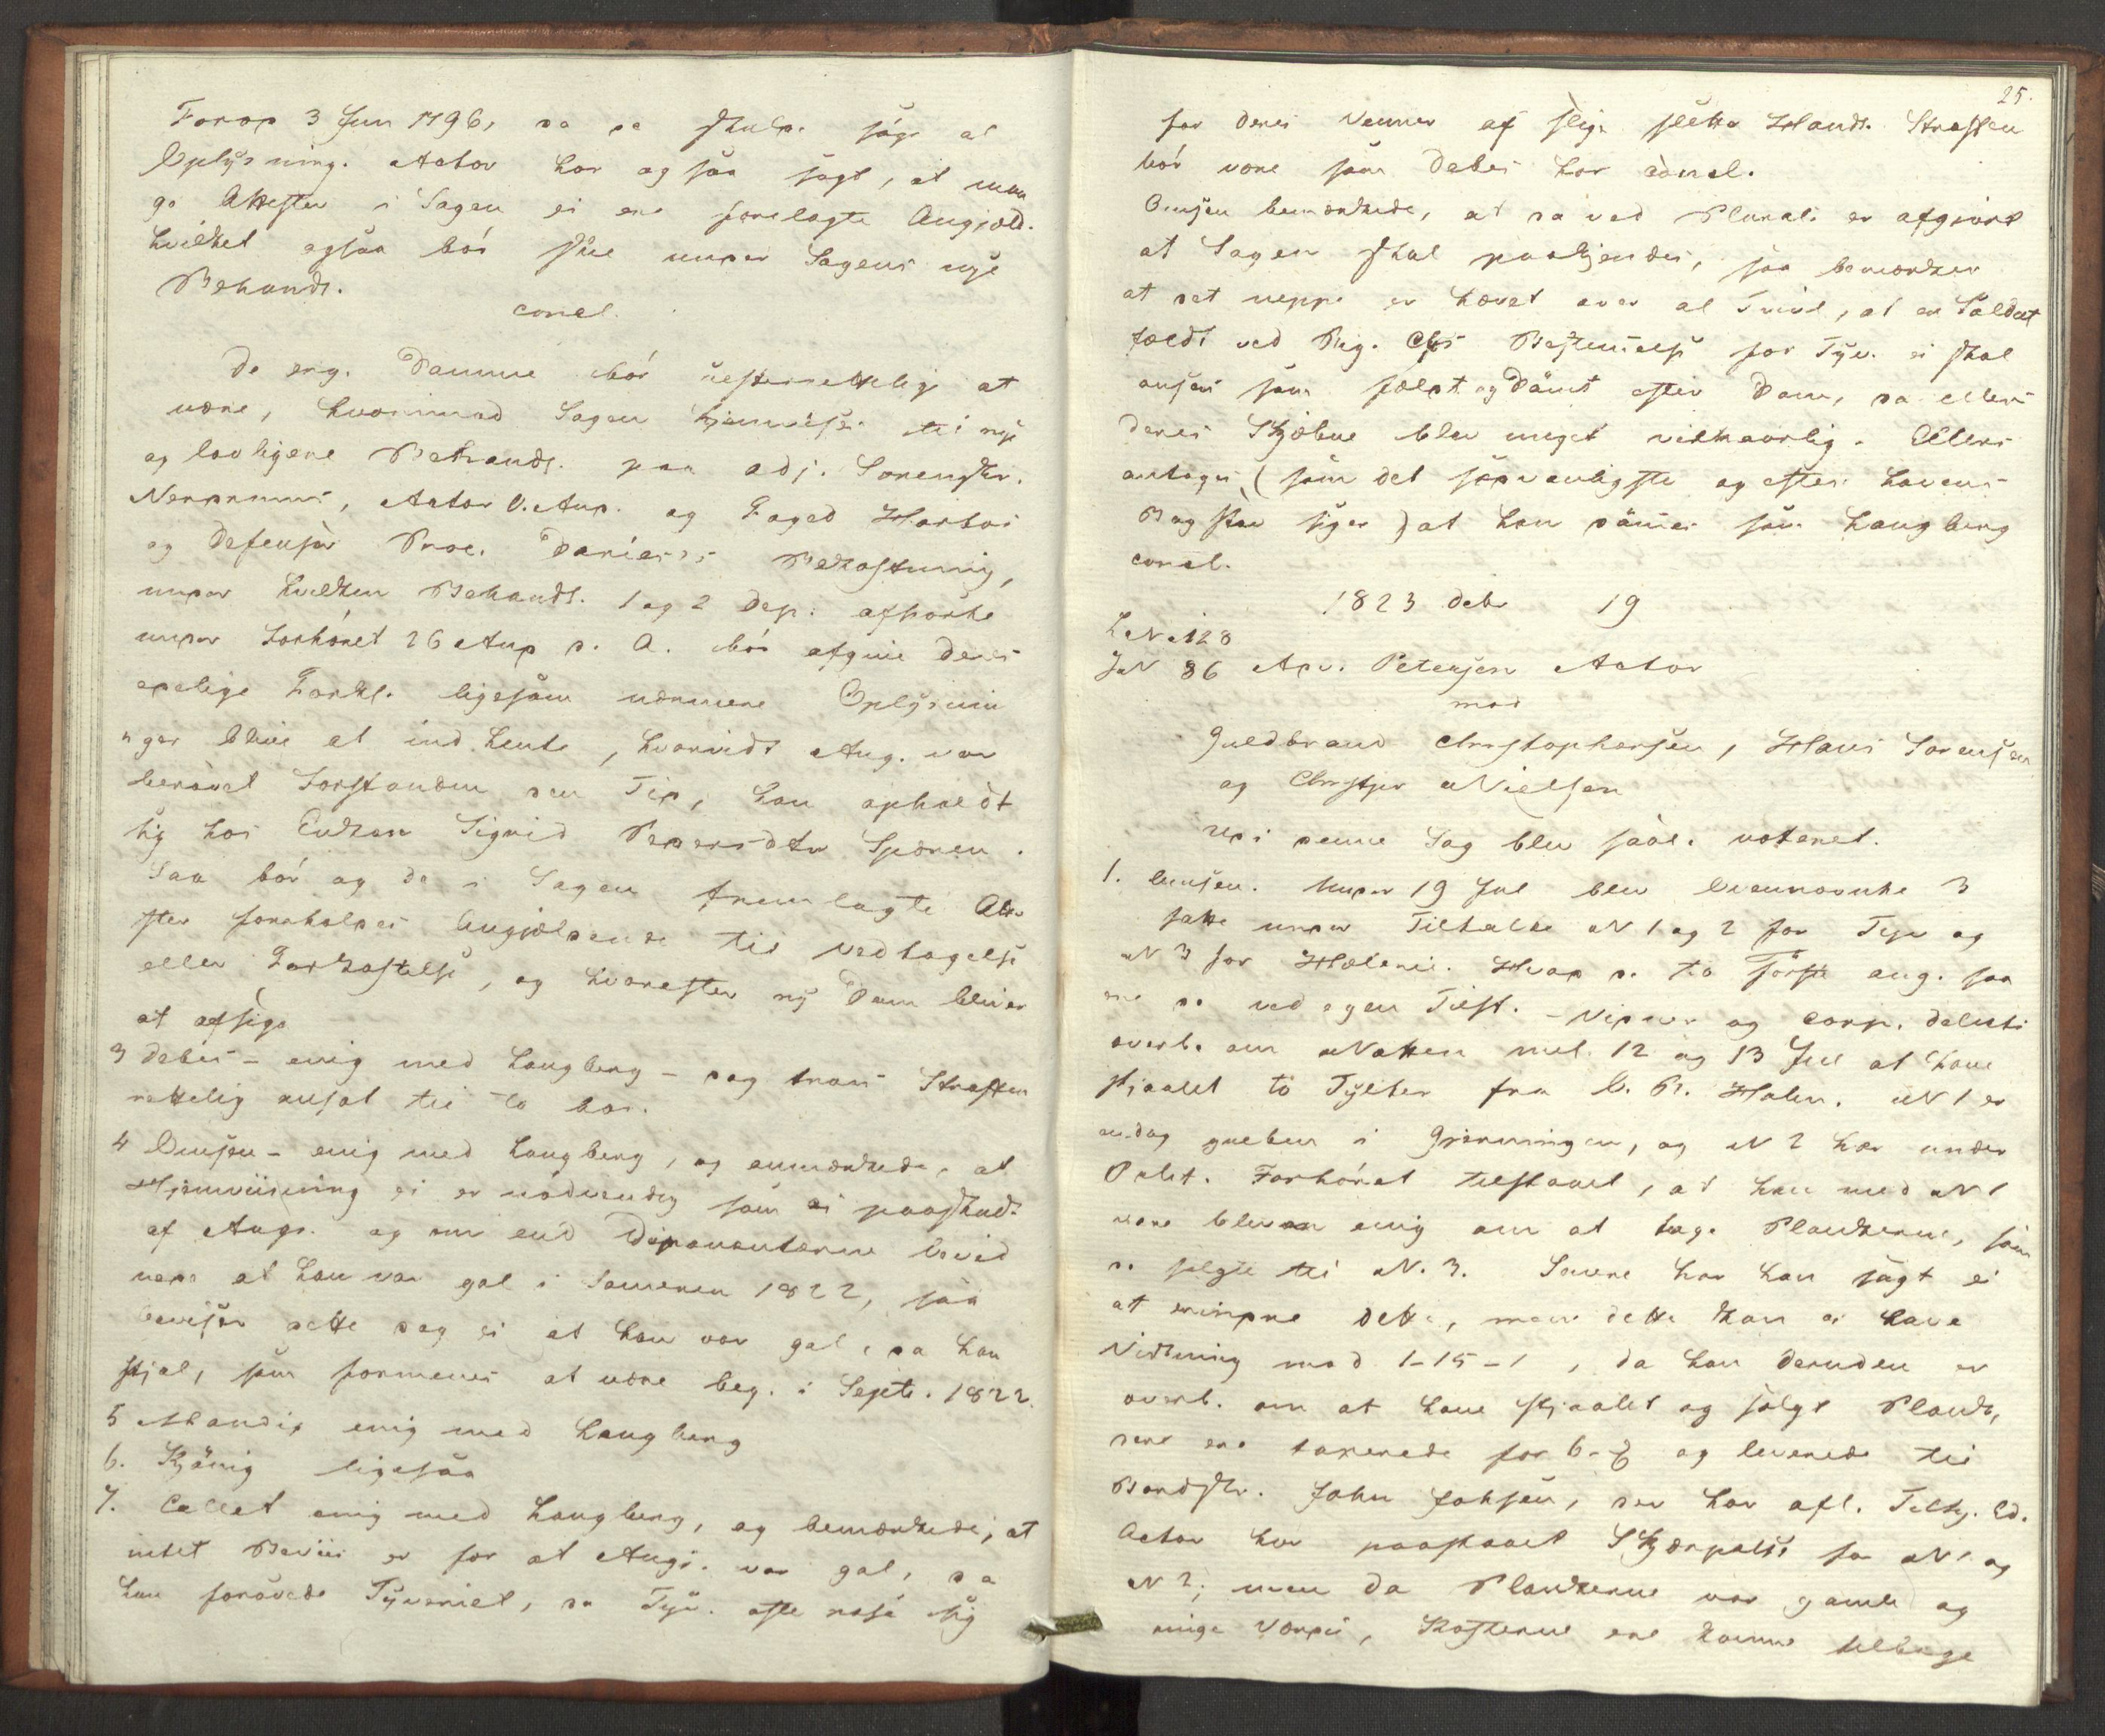 Forop 3 Jun 1796, da de skulde søge al
Oplysning. Actor har ogsaa sagt, at man
ge Attester i Sagen ei ere forelagte Angjæld.
hvilket ogsaa bør skee under Sagens nye
Behandl.
concl.
De eng. Domme bør uefterrettelige at
være, hvorimod Sagen hjemvises til nye
og lovligere Behandl. paa adj. Sorenskr.
Actor O. Aud. og Foged
og Defensor Proc. Bekostning,
under hvilken Behandl. 1 og 2 Dep. afhørte
under Forhøret 26 Aug d. A. bør afgive deres
edelige Forkl. ligesom nærmere Oplysnin
"ger blive at indhente, hvorvidt Ang. var
berøvet Forstanden den Tid, han opholdt
sig hos Enken Sigrid Pedersdtr
Saa bør og de i Sagen fremlagte Atte
ster foreholdes Angjældende til Vedtagelse
eller Forkastelse, og hvorefter ny Dom bliver
at afsige
3 Debes - enig med Langberg - dog troer Straffen
rettelig ansat til to Aar.
4 Omsen - enig med Langberg, og anmærkede, at
Hjemviisning ei er nødvendig som ei paastaaet
af Angs. og om end Deponenterne bevid
nede at han var gal i Sommeren 1822, saa
beviser dette dog ei at han var gal, da han
stjal, som formenes at være beg. i Septr. 1822.
5 enig med Langberg
6. ligesaa
7. Collet enig med Langberg, og bemærkede, at
intet Beviis er for at Angs. var gal, da
han forøvede Tyveriet, da Tyve ofte rose sig
25.
for deres Venner af slige slette Handl. Straffen
bør være som Debes har concl.
Omsen bemærkede, at da ved Plural. er afgjort
at Sagen skal paakjendes, saa bemærker
at det neppe er hævet over al Tvivl, at en Soldat
fældt ved Reg. Chs Bestemmelse for Tyv. ei skal
ansees som fældet og dømt efter Dom, da ellers
deres Skjæbne blev meget vilkaarlig. Ellers
antages (som det sædvanligste og efter Lovens
Bogstav siger) at han dømmes som Langberg
concl.
1823 Debr 19
L N 128
J N 86 Adv. Petersen Actor
mod
Guldbrand Christophersen, Hans Sørensen
og Christen Nielsen
Udi denne Sag blev saal. voteret.
1. Omsen. Under 19 Jul blev 3
satte under Tiltale N 1 og 2 for Tyv. og
N 3 for Hæleri. Hvad de to første ang. saa
ere de ved egen Tilst. - Vidner og corp. delicti
overb. om Natten mel. 12 og 13 Jul at have
stjaalet to Tylter fra O. P. Holm. N 1 er
endog greben i Gjerningen, og N 2 har under
Polit. Forhøret tilstaaet, at han med N 1
vare bleven enig om at tage Plankerne, som
de solgte til N. 3. Senere har han sagt ei
at erindre dette, men dette kan ei have
Virkning mod 1-15-1, da han desuden er
overb. om at have stjaalet og solgt Plank,
der ere taxerede for 6 og leverede til
Bordskr. John Johsen, der har afl. Tilhj. Ed.
Actor har paastaaet Skjærpelse for N 1 og
N 2; men da Plankerne var gamle og
ringe Værdi, Kosterne ere komne tilbage